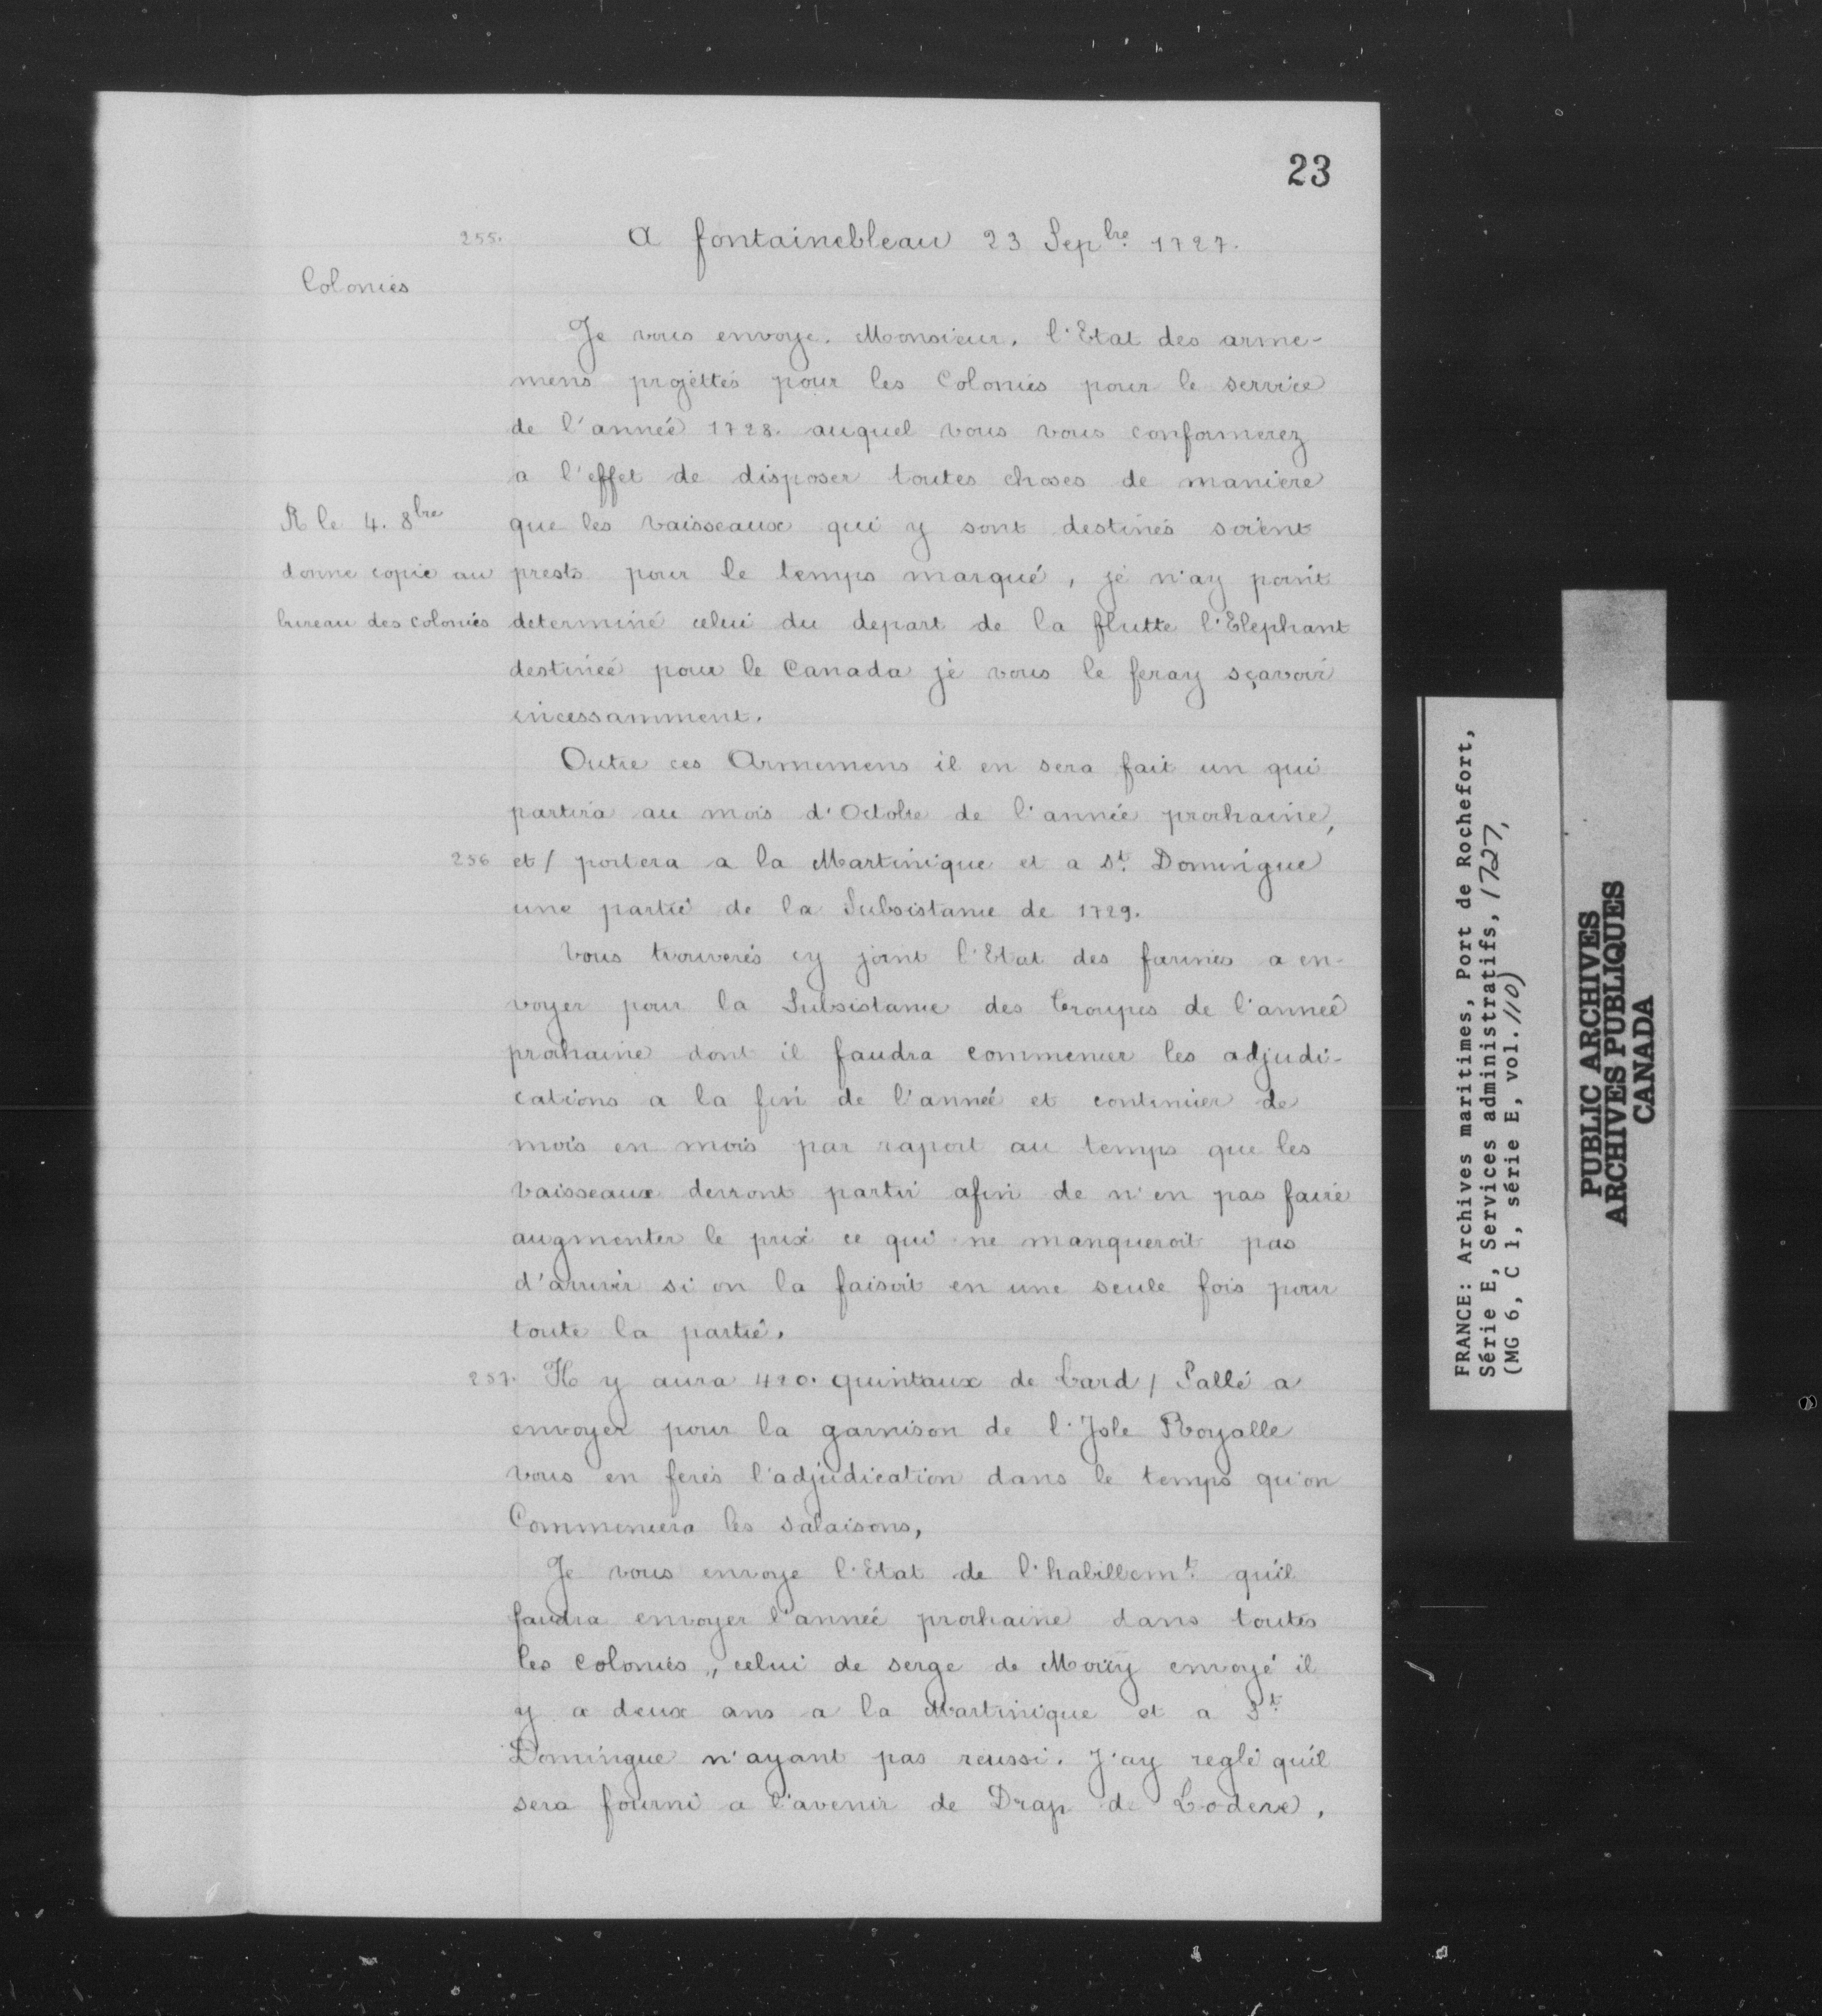 23
255. A fontainebleau 23 Sepbre 1727.
Colonies
Je vous envoye. Monsieur. l'Etat des arme-
mens projéttés pour les Colonies pour le service
de l'année 1728. auquel vous vous conformerez
a l'effet de disposer toutes choses de maniere
que les vaisseaux qui y sont destinés soient
R le 4. 8bre
donne copie au
bureau des colonies
prests pour le temps marqué, je n'ay point
determiné celui du depart de la flutte l'Elephant
destinéé pour le Canada je vous le feray sçavoir
incessamment.
Outre ces Armemens il en sera fait un qui
partira au mois d'Octobre de l'année prochaine,
256 et / portera a la Martinique et a St. Domingue
une partie de la Subsistance de 1729.
Vous trouverés cy joint l'Etat des farines a en-
voyer pour la Subsistance des Troupes de l'année
prochaine dont il faudra commencer les adjudi-
cations a la fin de l'année et continuer de
mois en mois par raport au temps que les
vaisseaux devront partir afin de n'en pas faire
augmenter le prix ce qui ne manqueroit pas
d'arriver si on la faisoit en une seule fois pour
toute la partie.
257. Il y aura 420. quintaux de Lard / Sallé a
envoyer pour la garnison de l'Isle Royalle
vous en ferés l'adjudication dans le temps qu'on
Commencera les salaisons,
Je vous envoye l'Etat de l'habillemt. qu'il
faudra envoyer l'année prochaine dans toutes
les colonies, celui de serge de Moüy envoyé il
y a deux ans a la Martinique et a St.
Domingue n'ayant pas reussi. J'ay reglé qu'il
sera fourni a l'avenir de Drap de Lodeve,
FRANCE: Archives maritimes, Port de Rochefort,
Série E, Services administratifs, 1727,
(MG 6, C 1, série E, vol. 110)
PUBLIC ARCHIVES
ARCHIVES PUBLIQUES
CANADA